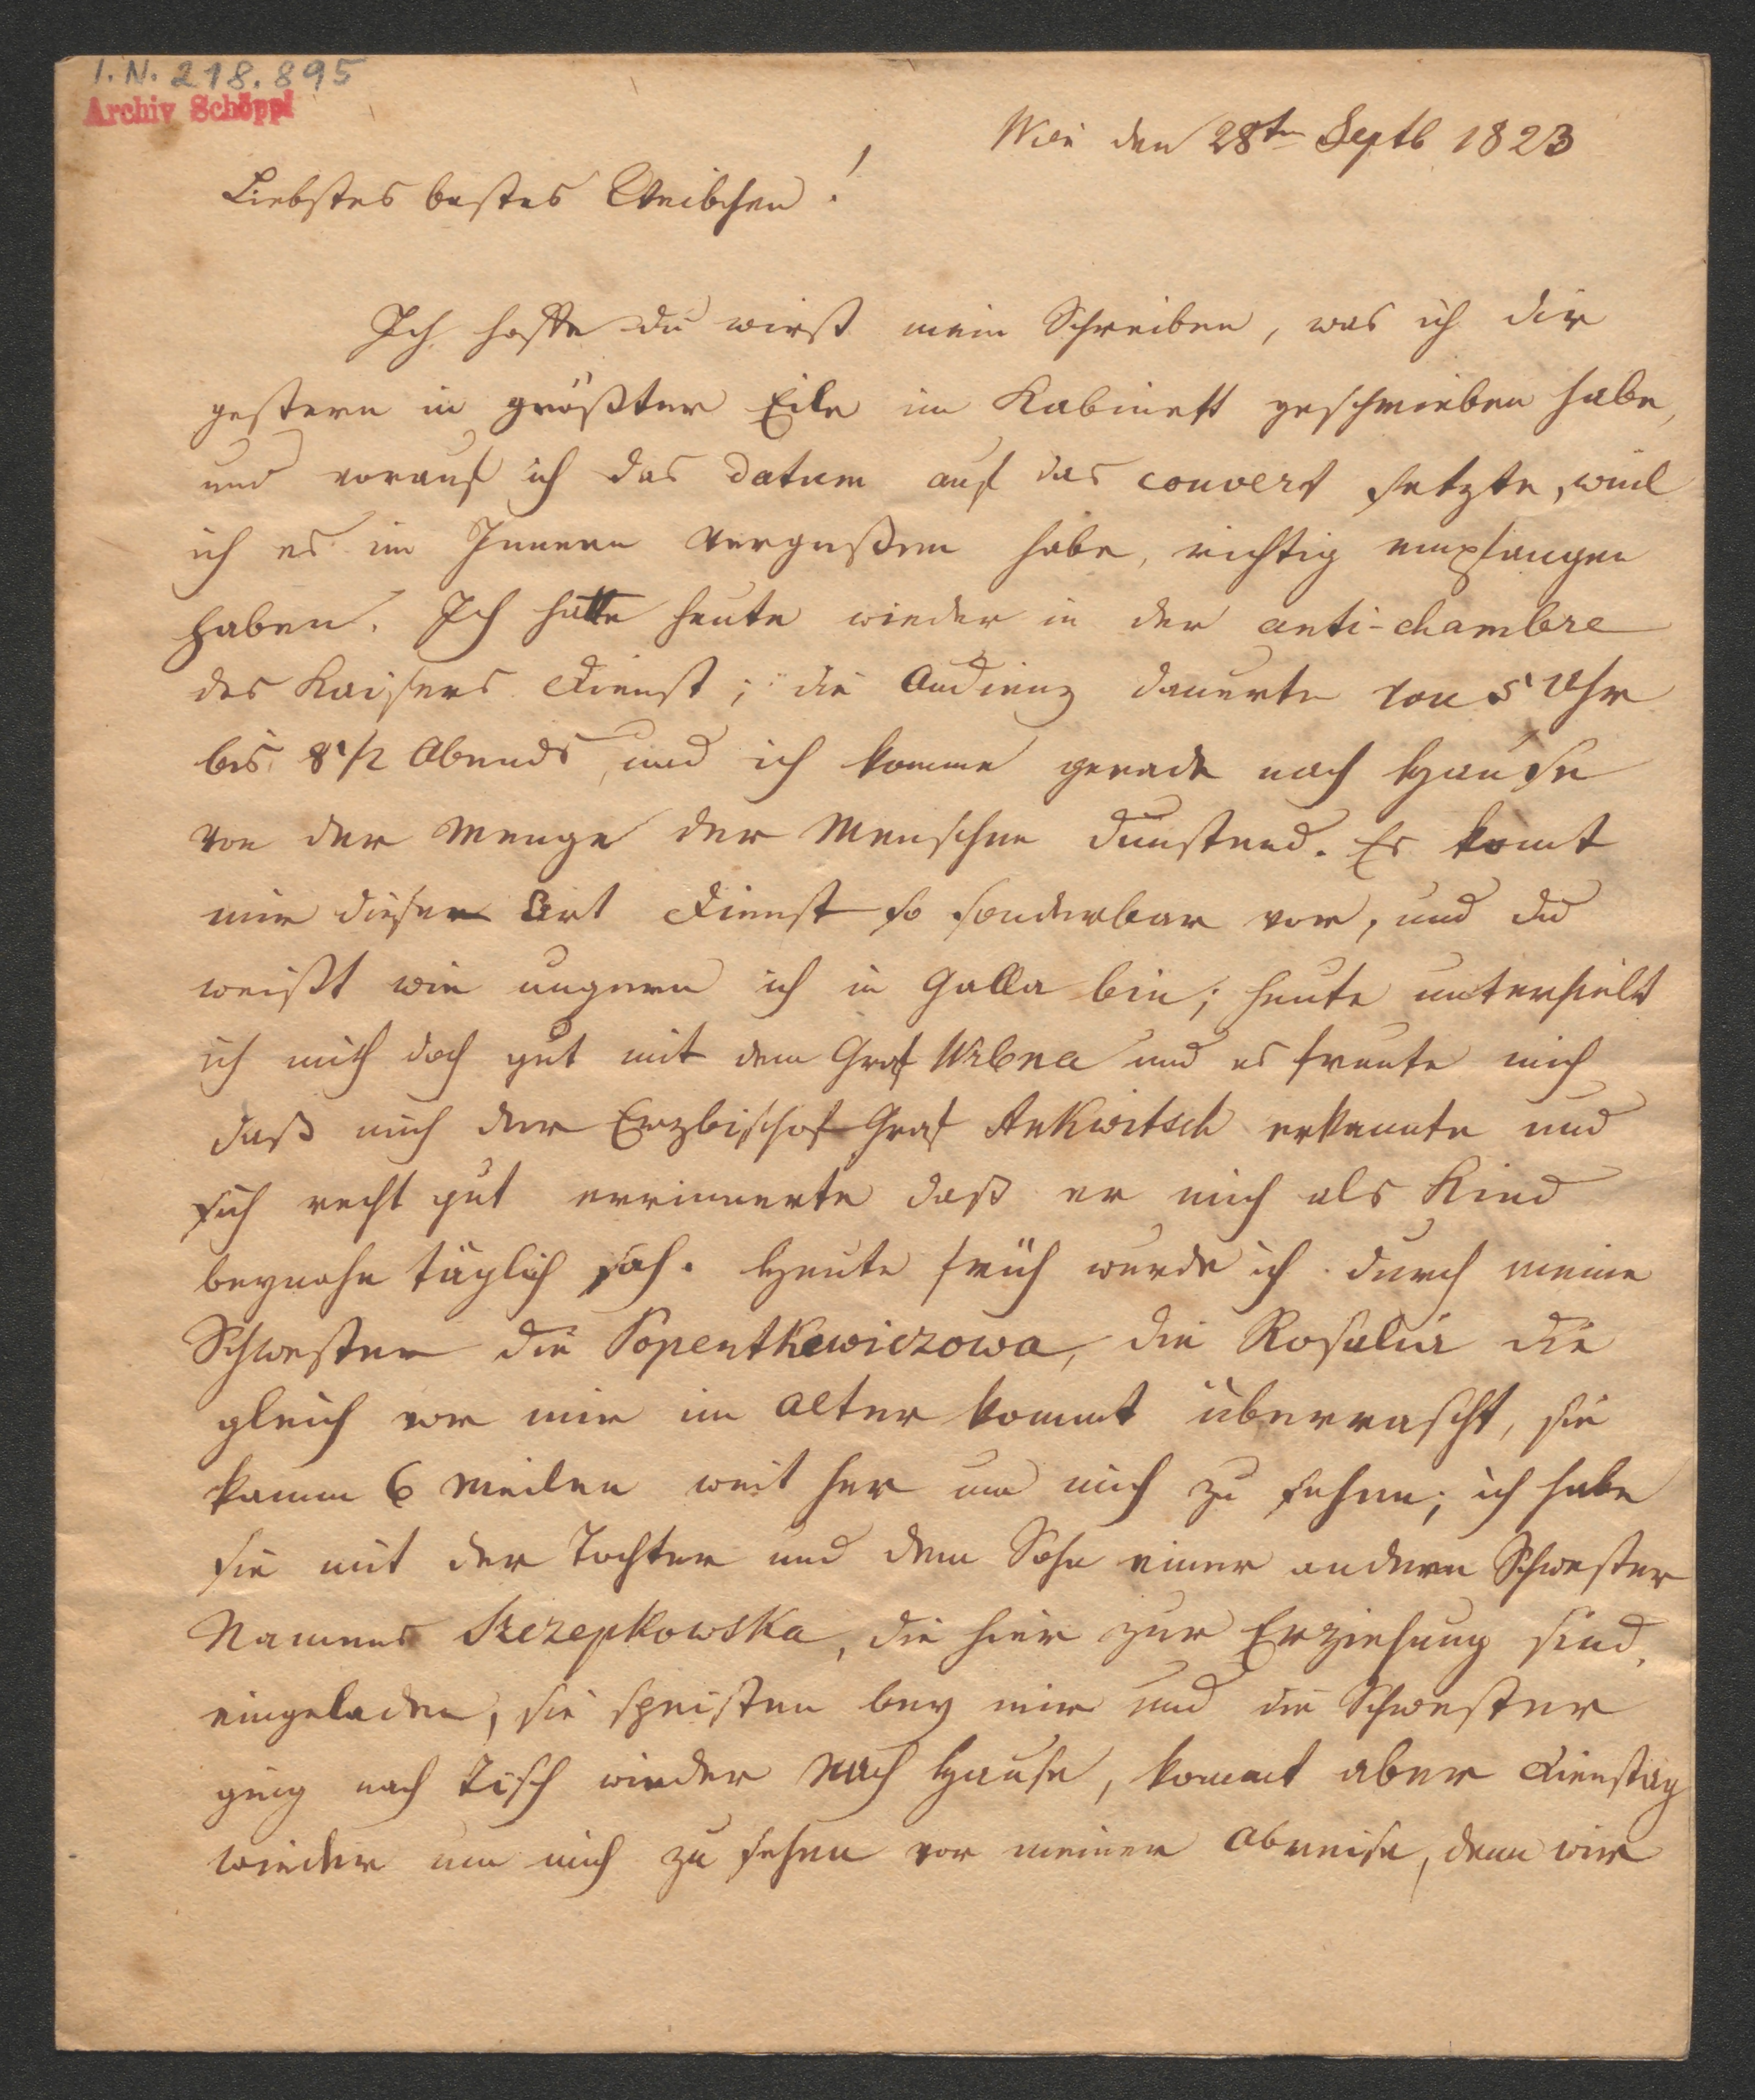 I. N. 218.895
Archiv Schöppl
den 28ten Septb 1823
Liebstes bestes Weibchen!
Ich hoffe du wirst mein Schreiben, was ich dir
gestern in größter Eile im Kabinett geschrieben habe,
und worauf ich das Datum auf das couvert setzte, weil
ich es im Innern vergeßen habe, richtig empfangen
haben. Ich hatte heute wieder in der anti-chambre
des Kaisers Dienst; die Audienz dauerte von 5 Uhr
bis 8 1/2 Abends, und ich komme gerade nach Hause
von der Menge der Menschen dünstend. Es komt
mir diese Art Dienst so sonderbar vor, und du
weißt wie ungern ich in Galla bin; heute unterhielt
ich mich doch gut mit dem Graf Wrbna und es freute mich
daß mich der Erzbischof Graf Ankwitsch erkannte und
sich recht gut errinnerte daß er mich als Kind
beynahe täglich sah. Heute früh wurde ich durch meine
Schwester die Popentkewiczowa, die Rosalia die
gleich vor mir im Alter kommt überrascht, sie
kamm 6 Meilen weit her um mich zu sehen; ich habe
sie mit der Tochter und dem Sohn einer andern Schwester
Namens Szczepkowska, die hier zur Erziehung sind,
eingeladen, sie speisten bey mir und die Schwester
ging nach Tisch wieder nach Hause, kommt aber Dienstag
wieder um mich zu sehen vor meiner Abreise, denn wir